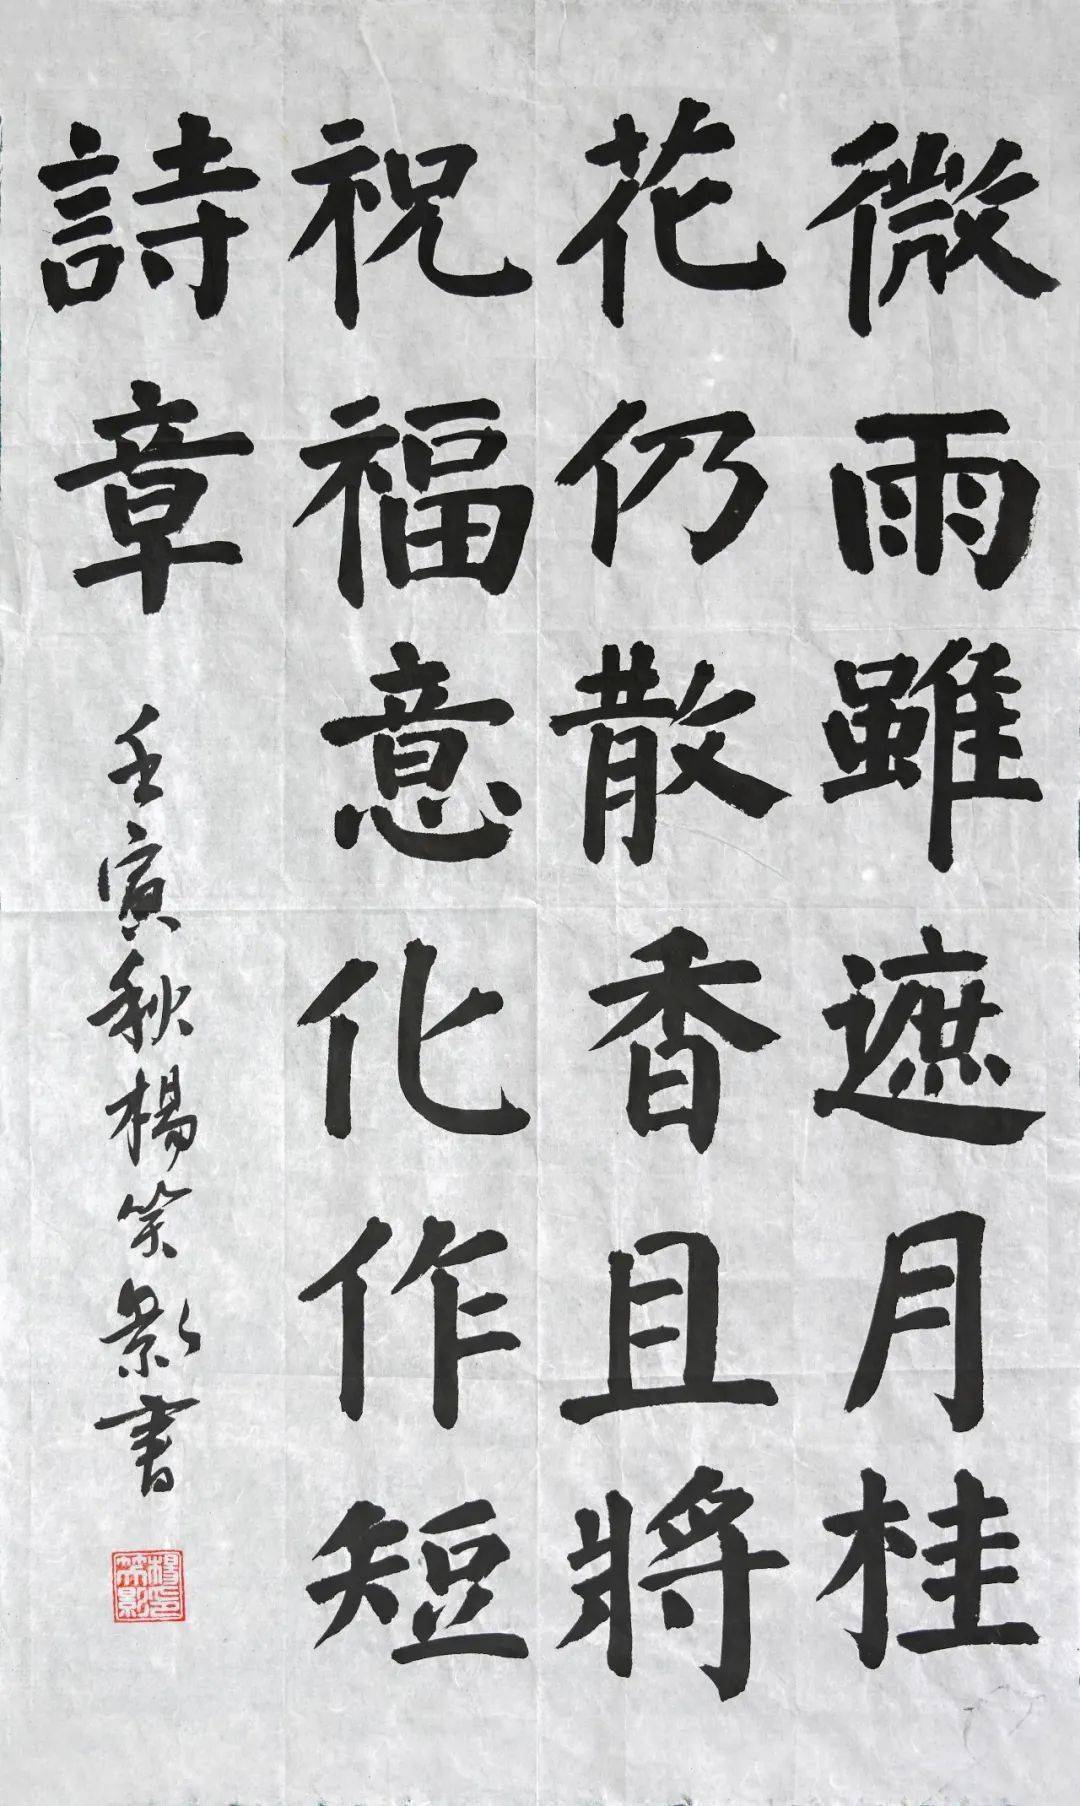 微雨雖遮月桂
花仍散香且將
祝福意化作短
詩章
壬寅秋楊笑影書
楊笑影印